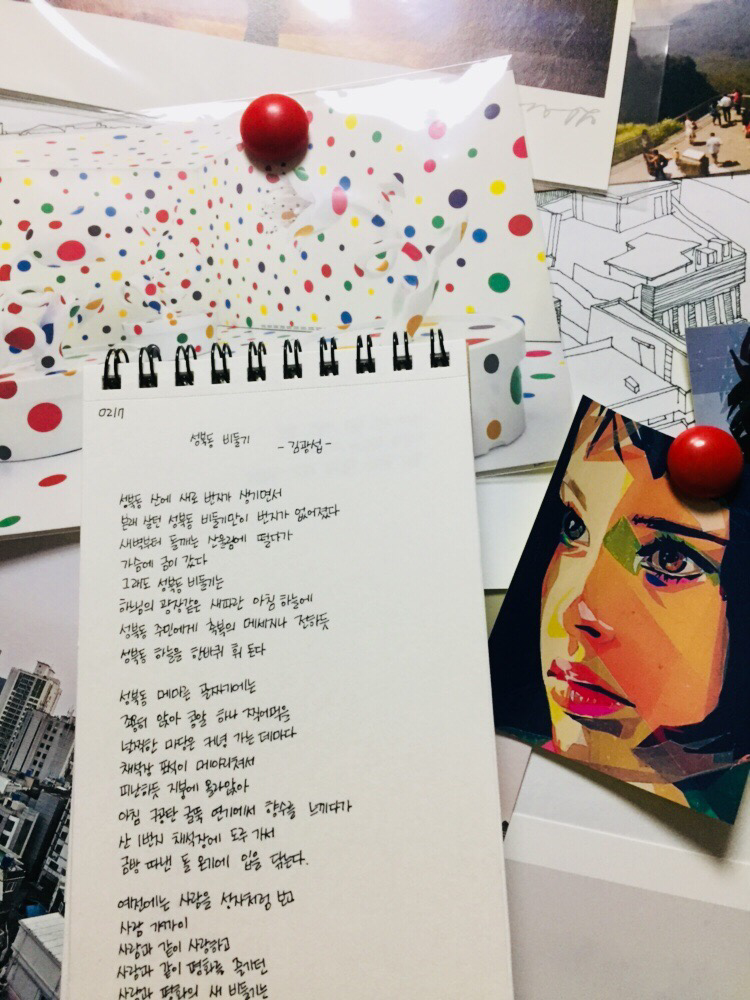 02/17
성북동 비둘기
-김광섭-
성북동 산에 새로 번지가 생기면서
본래 살던 성북동 비둘기만이 번지가 없어졌다
새벽부터 돌깨는 산울림에 떨다가
가슴에 금이 갔다
그래도 성북동 비둘기는
하느님의 광장같은 새파란 아침 하늘에
성북동 주민에게 축복의 메세지나 전하듯
성북동 하늘을 한바퀴 휘 돈다
성북동 메마른 골짜기에는
조용히 앉아 콩알 하나 찍어먹을
널찍한 마당은 커녕 가는 데마다
채석장 포성이 메아리쳐서
피난하듯 지붕에 올라앉아
아침 구공탄 굴뚝 연기에서 향수를 느끼다가
산 1번지 채석장에 도루 가서
금방 따낸 돌 온기에 입을 닦는다.
예전에는 사람을 성자처럼 보고
사람 가까이
사람과 같이 사랑하고
사람과 같이 평화를 즐기던
사랑과 평화의 새 비둘기는